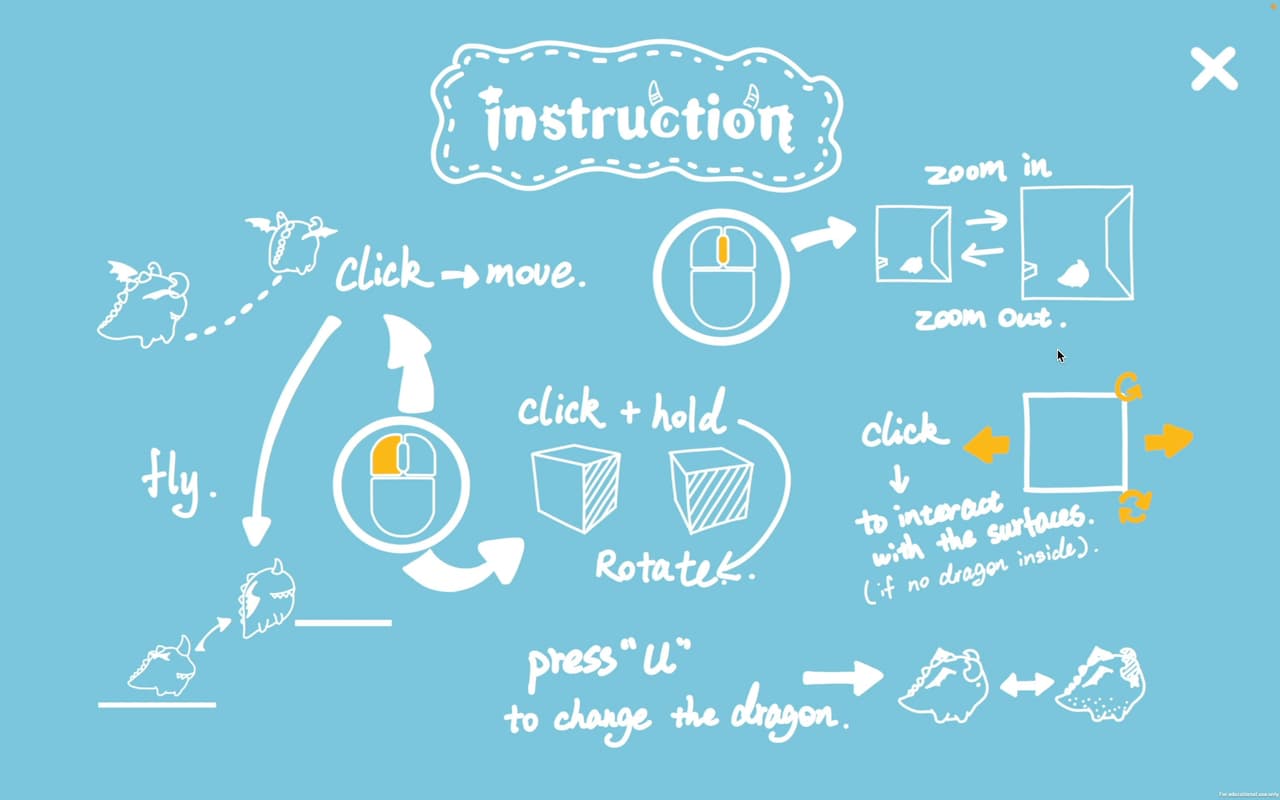 instruction
zoom in
click → move.
zoom out.
click + hold
click
fly.
to interact
with the surfaces.
(if no dragon inside).
Rotate.
press "U"
to change the dragon.
For educational use only